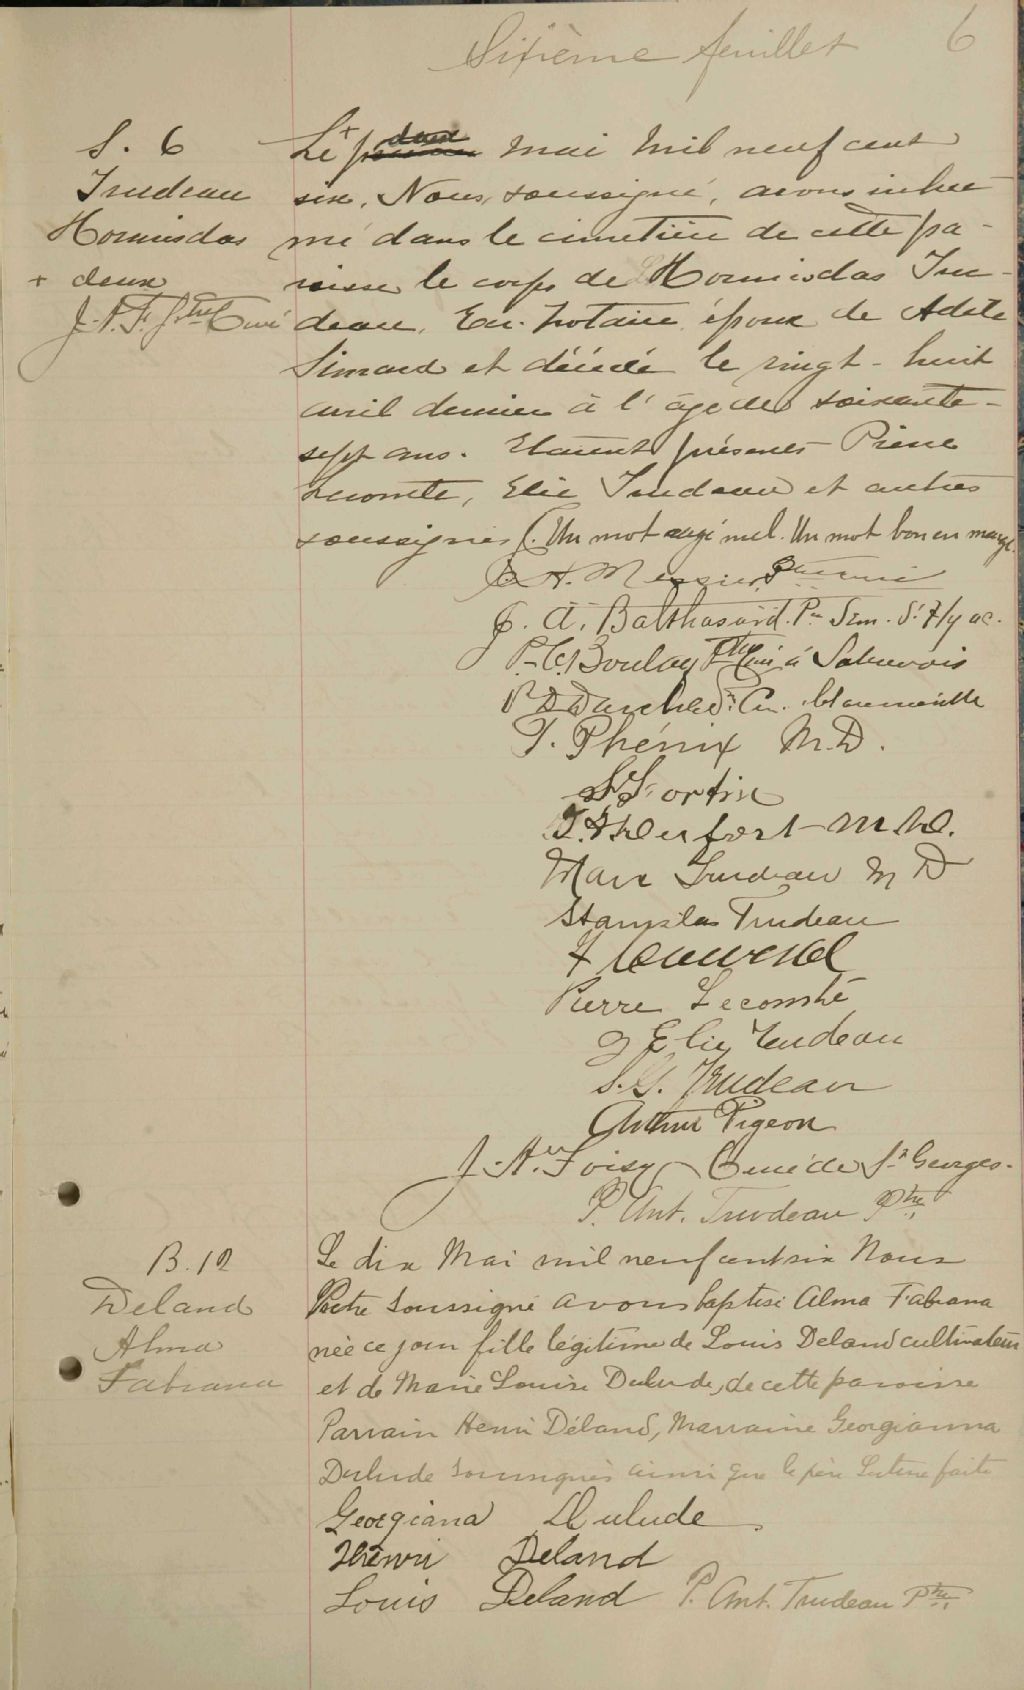 Sixième feuillet 6
S. 6
Trudeau
Hormisdas
+ deux
Le + deux mai mil neuf cent
six, Nous, soussigné, avons inhu-
mé dans le cimetière de cette pa-
roisse le corps de Hormisdas Tru-
deau, Ecr. Notaire, époux de Adèle
Simard et décédé le vingt-huit
avril dernier à l'âge de soixante-
sept ans. Etaient présents Pierre
Lecomte, Elie Trudeau et autres
soussignés. (Un mot rayé nul. Un mot bon en marge.
A. Messier Ptre curé
J. A. Balthasard. Ptr Sém. St Hyac.
P. C. Boulay Ptre Curé à Sabrevois
T. Phénix M.D.
Fortin
Marc Trudeau M D
Stanislas Trudeau
Pierre Lecomte
J Elie Trudeau
S. G. Trudeau
Arthur Pigeon
J. Hu. Foisy Curé de St Georges.
P. Ant. Trudeau Ptre
B. 12
Deland
Alma
Fabiana
Le dix Mai mil neuf cent six Nous
Prêtre soussigné avons baptisé Alma Fabiana
née ce jour fille légitime de Louis Deland cultivateur
et de Marie Louise Dulude, de cette paroisse
Parrain Henri Déland, Marraine Georgianna
Dulude soussignés ainsi que le père Lecture faite
Georgiana Dulude
Henri Deland
Louis Deland P. Ant. Trudeau Ptre